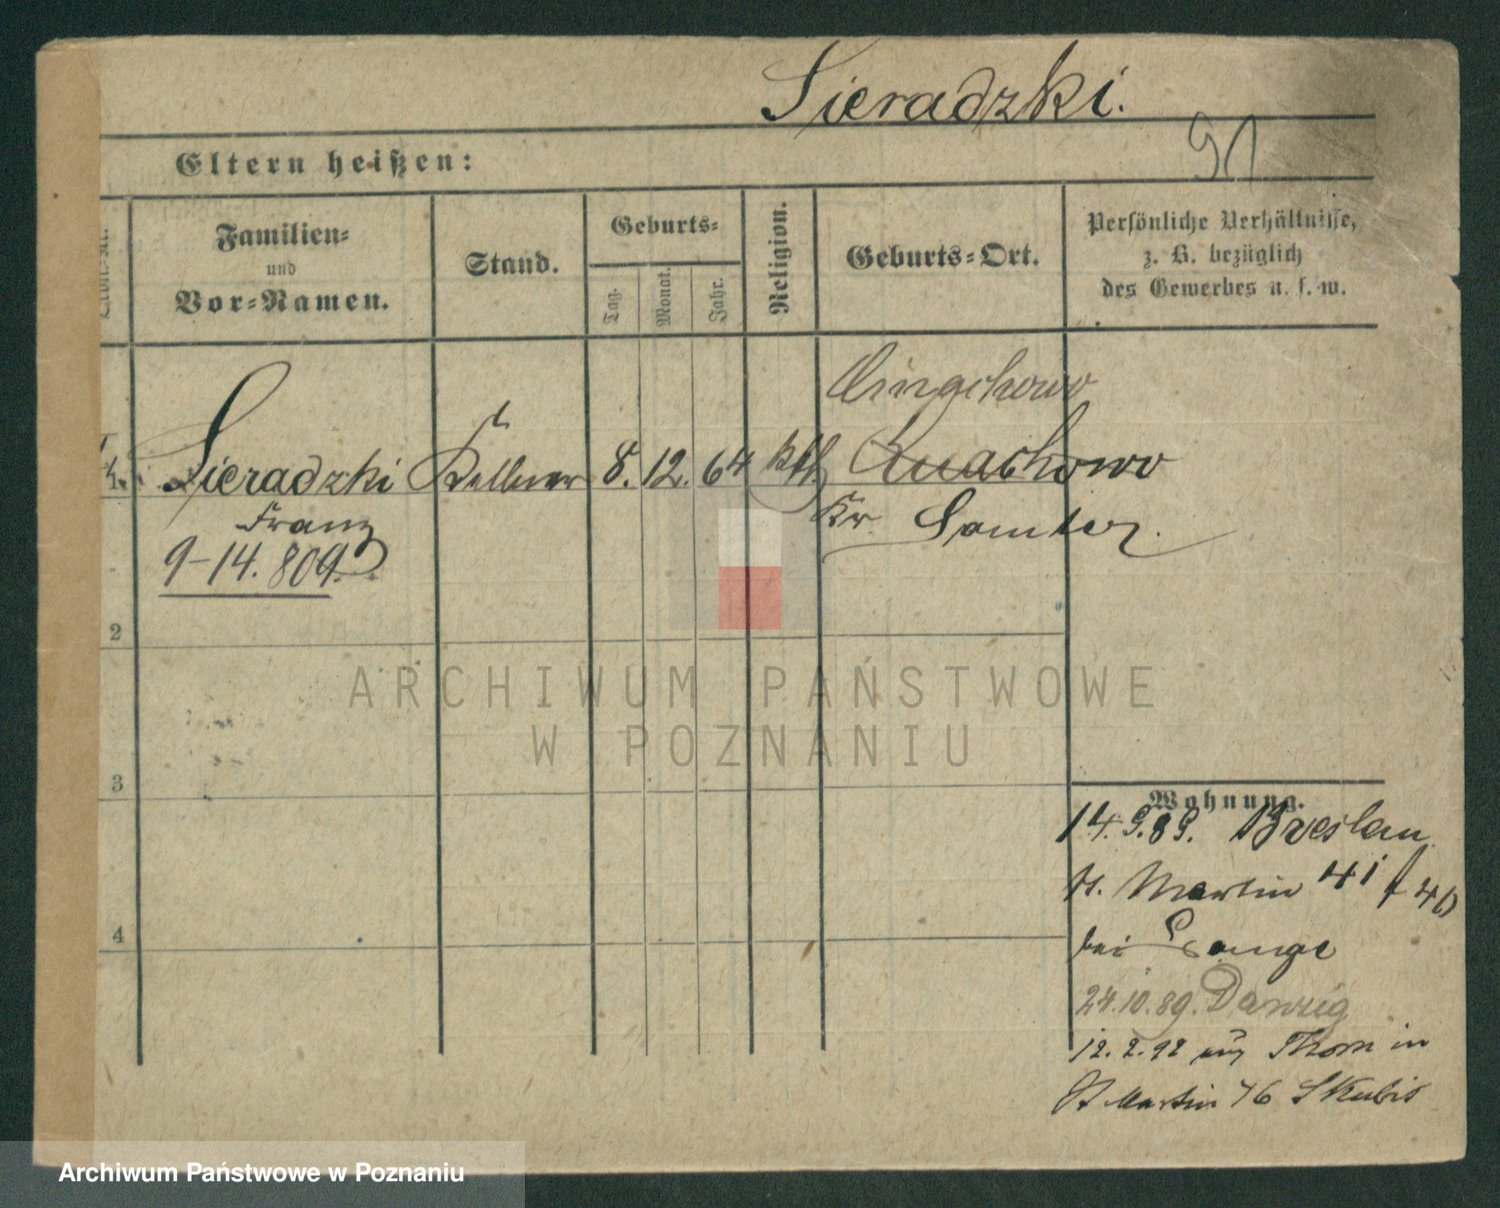 Sieradzki.
91
Eltern heißen:
Familien-
und
Vor-Namen.
Stand.
Geburts-
Tag.
Monat.
Jahr.
Religion.
Geburts-Ort.
Persönliche Verhältnisse,
z. B. bezüglich
des Gewerbes u. s. w.
1. Sieradzki Kellner 8. 12. 64 kth
Franz
9-14.809.
Kr. Samter.
2
3
4
Wohnung.
14.9.89. Breslau
St. Martin 41 40
bei Lange
24.10.89. Danzig
12.2.92 aus Thorn in
St Martin 76 Skubis
ARCHIWUM PAŃSTWOWE
W POZNANIU
Archiwum Państwowe w Poznaniu